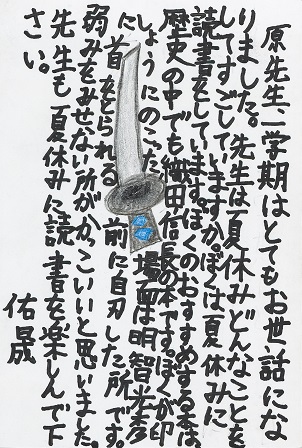 原先生一学期はとてもお世話にな
りました。先生は夏休みどんなことを
してすごしていますか。ぼくは夏休みに
読書をしています。ぼくのおすすめする本は
歴史の中でも織田信長の本です。ぼくが印
しょうにのこった場面は明智光彦
に首をとられる前に自刃した所です。
弱みをみせない所がかっこいいと思いました。
先生も夏休みに読書を楽しんで下
さい。
佑晟